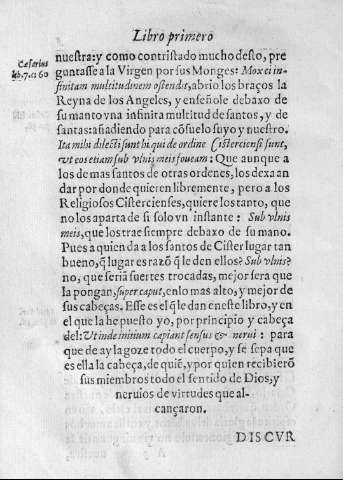 Libro primero
Cæsarius
lib. 7. ca 60
nuestra: y como contristado mucho desto, pre
guntasse a la Virgen por sus Monges: Mox ei in-
finitam multitudinem ostendit, abrio los braços la
Reyna de los Angeles, y enseñole debaxo de
su manto vna infinita multitud de santos, y de
santas: añadiendo para cõsuelo suyo y nuestro.
Ita mihi dilecti sunt hi qui de ordine Cisterciensi sunt,
vt eos etiam sub vlnis meis foueam: Que aunque a
los demas santos de otras ordenes, los dexa an
dar por donde quieren libremente, pero a los
Religiosos Cistercienses, quiere los tanto, que
no los aparta de si solo vn instante: Sub vlnis
meis, que los trae siempre debaxo de su mano.
Pues a quien da a los santos de Cister lugar tan
bueno, q̃ lugar es razõ q̃ le den ellos? Sub vlnis?
no, que seriã suertes trocadas, mejor sera que
la pongan, super caput, en lo mas alto, y mejor de
sus cabeças. Esse es el q̃ le dan en este libro, y en
el que la he puesto yo, por principio y cabeça
del: Vt inde initium capiant sensus & nerui: para
que de ay la goze todo el cuerpo, y se sepa que
es ella la cabeça, de quiẽ, y por quien recibierõ
sus miembros todo el sentido de Dios, y
neruios de virtudes que al-
cançaron.
DISCVR